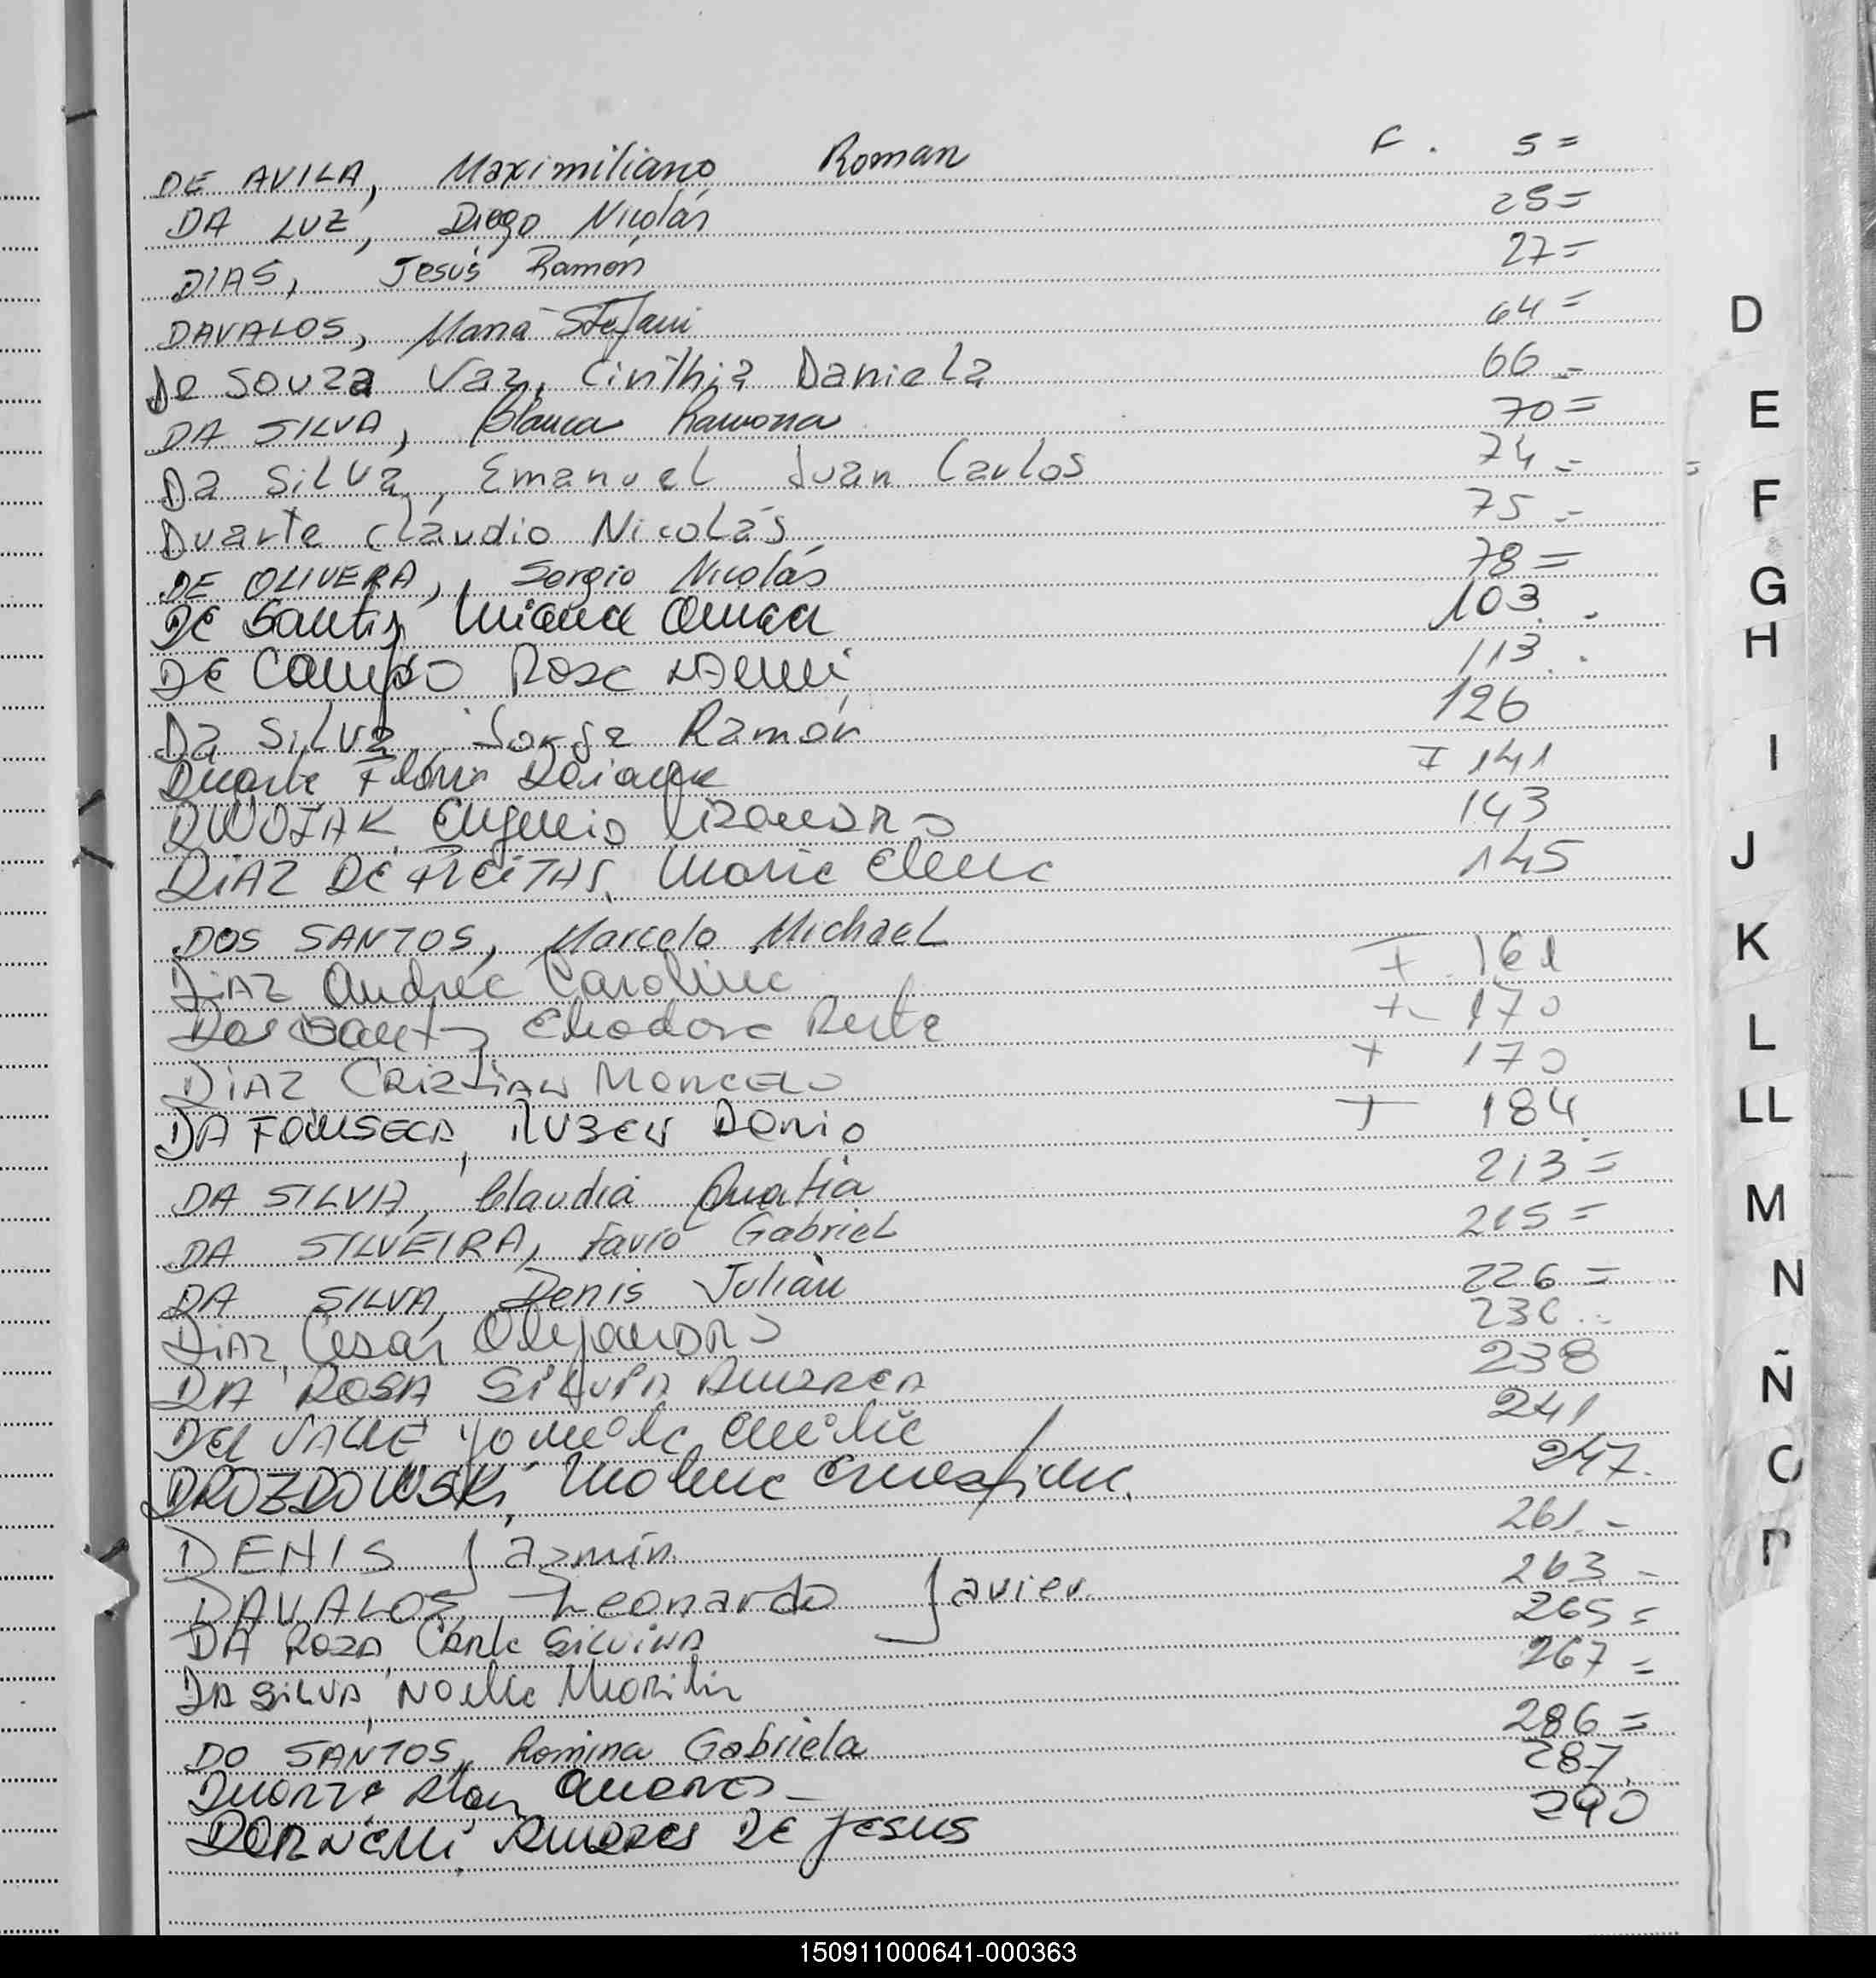 DE AVILA, Maximiliano Roman F. 5=
DA LUZ, Diego Nicolás 25=
DIAS, Jesús Ramón 27=
DAVALOS, María Stefani 64=
De Souza Vaz, Cinthia Daniela 66=
DA SILVA, Blanca Ramona 70=
Da Silva, Emanuel Juan Carlos 74=
Duarte Claudio Nicolás 75=
DE OLIVERA, Sergio Nicolás 78=
De Santis 103.
De Campo Rosa Noemi 113.
Da Silva Jorge Ramón 126
Duarte 141
Eugenio Lizandro 143
DIAZ DE FREITAS, Maria Elena 145
DOS SANTOS, Marcelo Michael
DIAZ Andrea Carolina 161
Dos Santos 170
DIAZ Cristian Marcelo 170
DA FONSECA, Ruben Dario 184
DA SILVA, Claudia 213=
DA SILVEIRA, Favio Gabriel 215=
DA SILVA, Denis Julián 226=
DIAZ, César Alejandro 236
DA ROSA Silvia Andrea 238
DEL VALLE 241
DROZDOWSKI, Ernestina. 247.
DENIS Jazmín 261.-
DAVALOS, Leonardo Javier. 263-
DA ROZA, Carla Silvina 265=
DA SILVA, Noelia 267=
DO SANTOS, Romina Gabriela 286=
Duarte Alan Andres 287.
De Jesus 290
D
E
F
G
H
I
J
K
L
LL
M
N
Ñ
O
P
150911000641-000363